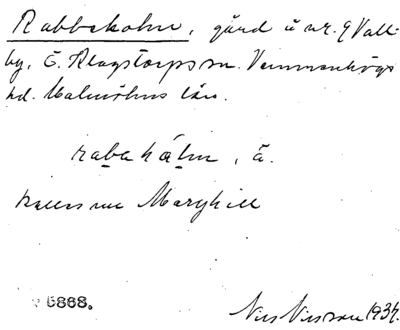 Rabbeholm, gård å nr. 9 Vall-
by, Ö. Klagstorps sn. Vemmenhögs
hd. Malmöhus län.
rabahålm, ä.
kallas nu Maryhill
6868. Nils Nilsson 1934.